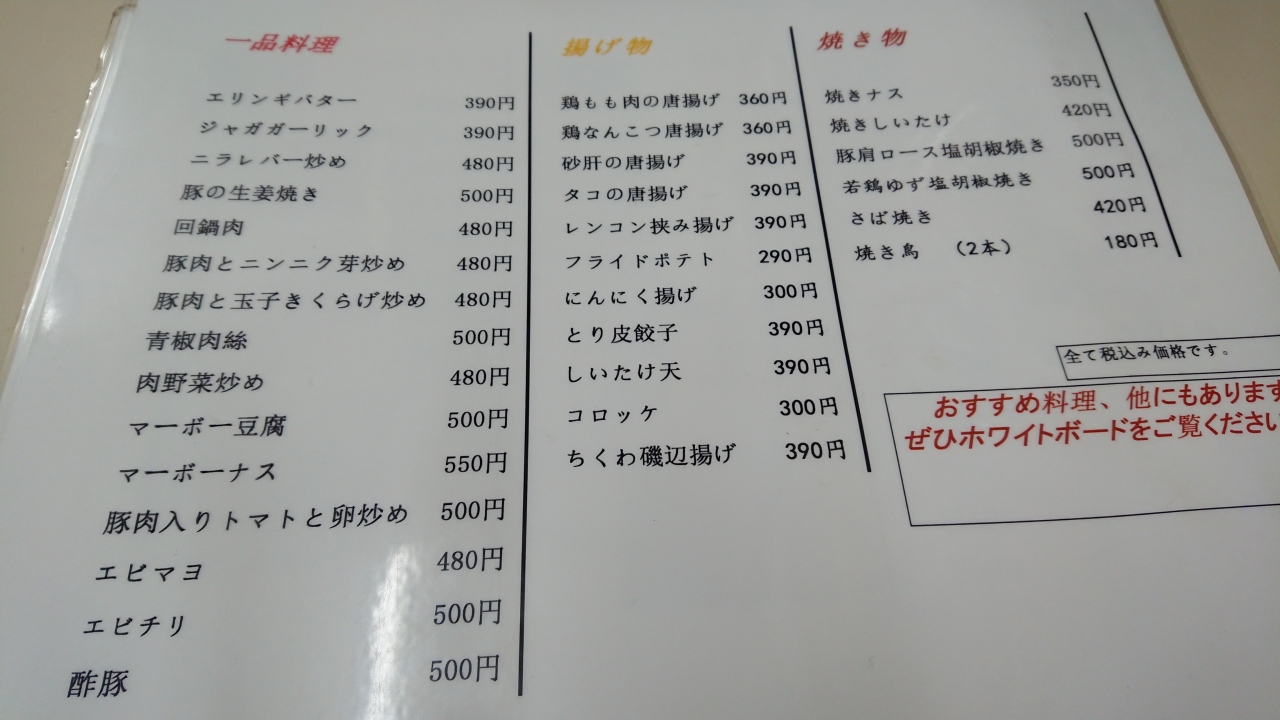 一品料理
エリンギバター 390円
ジャガガーリック 390円
ニラレバー炒め 480円
豚の生姜焼き 500円
回鍋肉 480円
豚肉とニンニク芽炒め 480円
豚肉と玉子きくらげ炒め 480円
青椒肉絲 500円
肉野菜炒め 480円
マーボー豆腐 500円
マーボーナス 550円
豚肉入りトマトと卵炒め 500円
エビマヨ 480円
エビチリ 500円
酢豚 500円
揚げ物
鶏もも肉の唐揚げ 360円
鶏なんこつ唐揚げ 360円
砂肝の唐揚げ 390円
タコの唐揚げ 390円
レンコン挟み揚げ 390円
フライドポテト 290円
にんにく揚げ 300円
とり皮餃子 390円
しいたけ天 390円
コロッケ 300円
ちくわ磯辺揚げ 390円
焼き物
焼きナス 350円
焼きしいたけ 420円
豚肩ロース塩胡椒焼き 500円
若鶏ゆず塩胡椒焼き 500円
さば焼き 420円
焼き鳥 (2本) 180円
全て税込み価格です。
おすすめ料理、他にもあります
ぜひホワイトボードをご覧ください